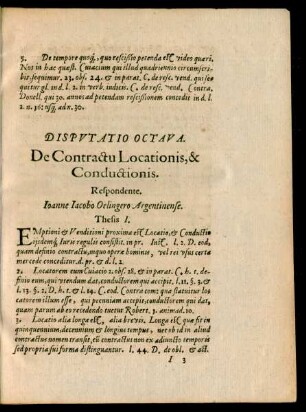 5. De tempore quoq́, quo rescißio petenda est, vides quæri.
Nos in hac quæst. Cuiacium qui illud quadriennio circumscri-
bit, sequimur. 23. obs. 24. & in parat. C. de resc. vend. qui se-
quitur gl. ind. l. 2. in verb. iudicii. C. de resc. vend, Contra.
Donell. qui 30. annos ad petendam rescissionem concedit in d. l.
2. n. 16. usq́, adn. 30.
DISPVTATIO OCTAVA.
De Contractu Locationis, &
Conductionis.
Respondente.
Ioanne Iacobo Oelingero Argentinense.
Thesis I.
EMptioni & Venditioni proxima est Locatio, & Conductio
ijsdemq́; Iuris regulis consistit. in pr. Inst. l. 2. D. eod,
quam definio contractu, in quo operæ hominis, vel rei vsus certa
mercede conceditur. d. pr. & d. l. 2.
2. Locatorem cum Cuiacio 2. obs. 28. & in parat. C. h. t. de-
finio eum, qui vtendum dat, conductorem qui accipit. l. 25. §. 3. &
l. 13. §. 2. D. h. t. & l. 24. C. eod. Contra eum quæ statuitur lo-
catorem illum esse, qui pecuniam accepit, conductorem qui dat,
quam parum ab eo recedendo tuetur Robert. 3. animad. 10.
3. Locatio alia longa est, alia brevis, Longa est quæ fit in
quinquennium, decennium & longius tempus, uterḃ id in aliud
contractus nomen transit, cũ contractus non ex adiuncto temporis
sed propria sui forma distinguantur. l. 44. D. de obl. & act.
I 3